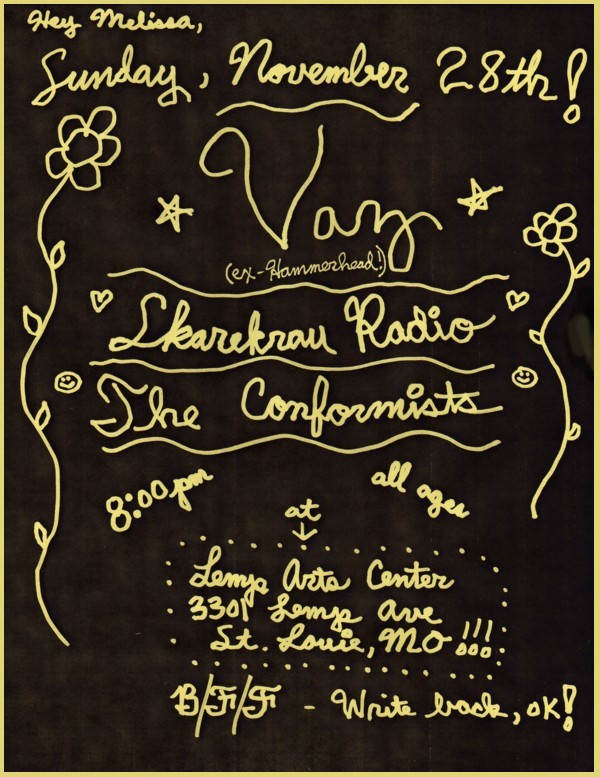 Hey Melissa,
Sunday, November 28th!
Vaz
(ex-Hammerhead!)
Skarekrau Radio
The Conformists
8:00 pm
all ages
at
Lemp Arts Center
3301 Lemp Ave
St. Louie, MO !!!
B/F/F - Write back, ok!